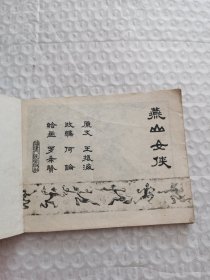 燕山女侠
原文 王振
改编 何
绘画 罗希贤